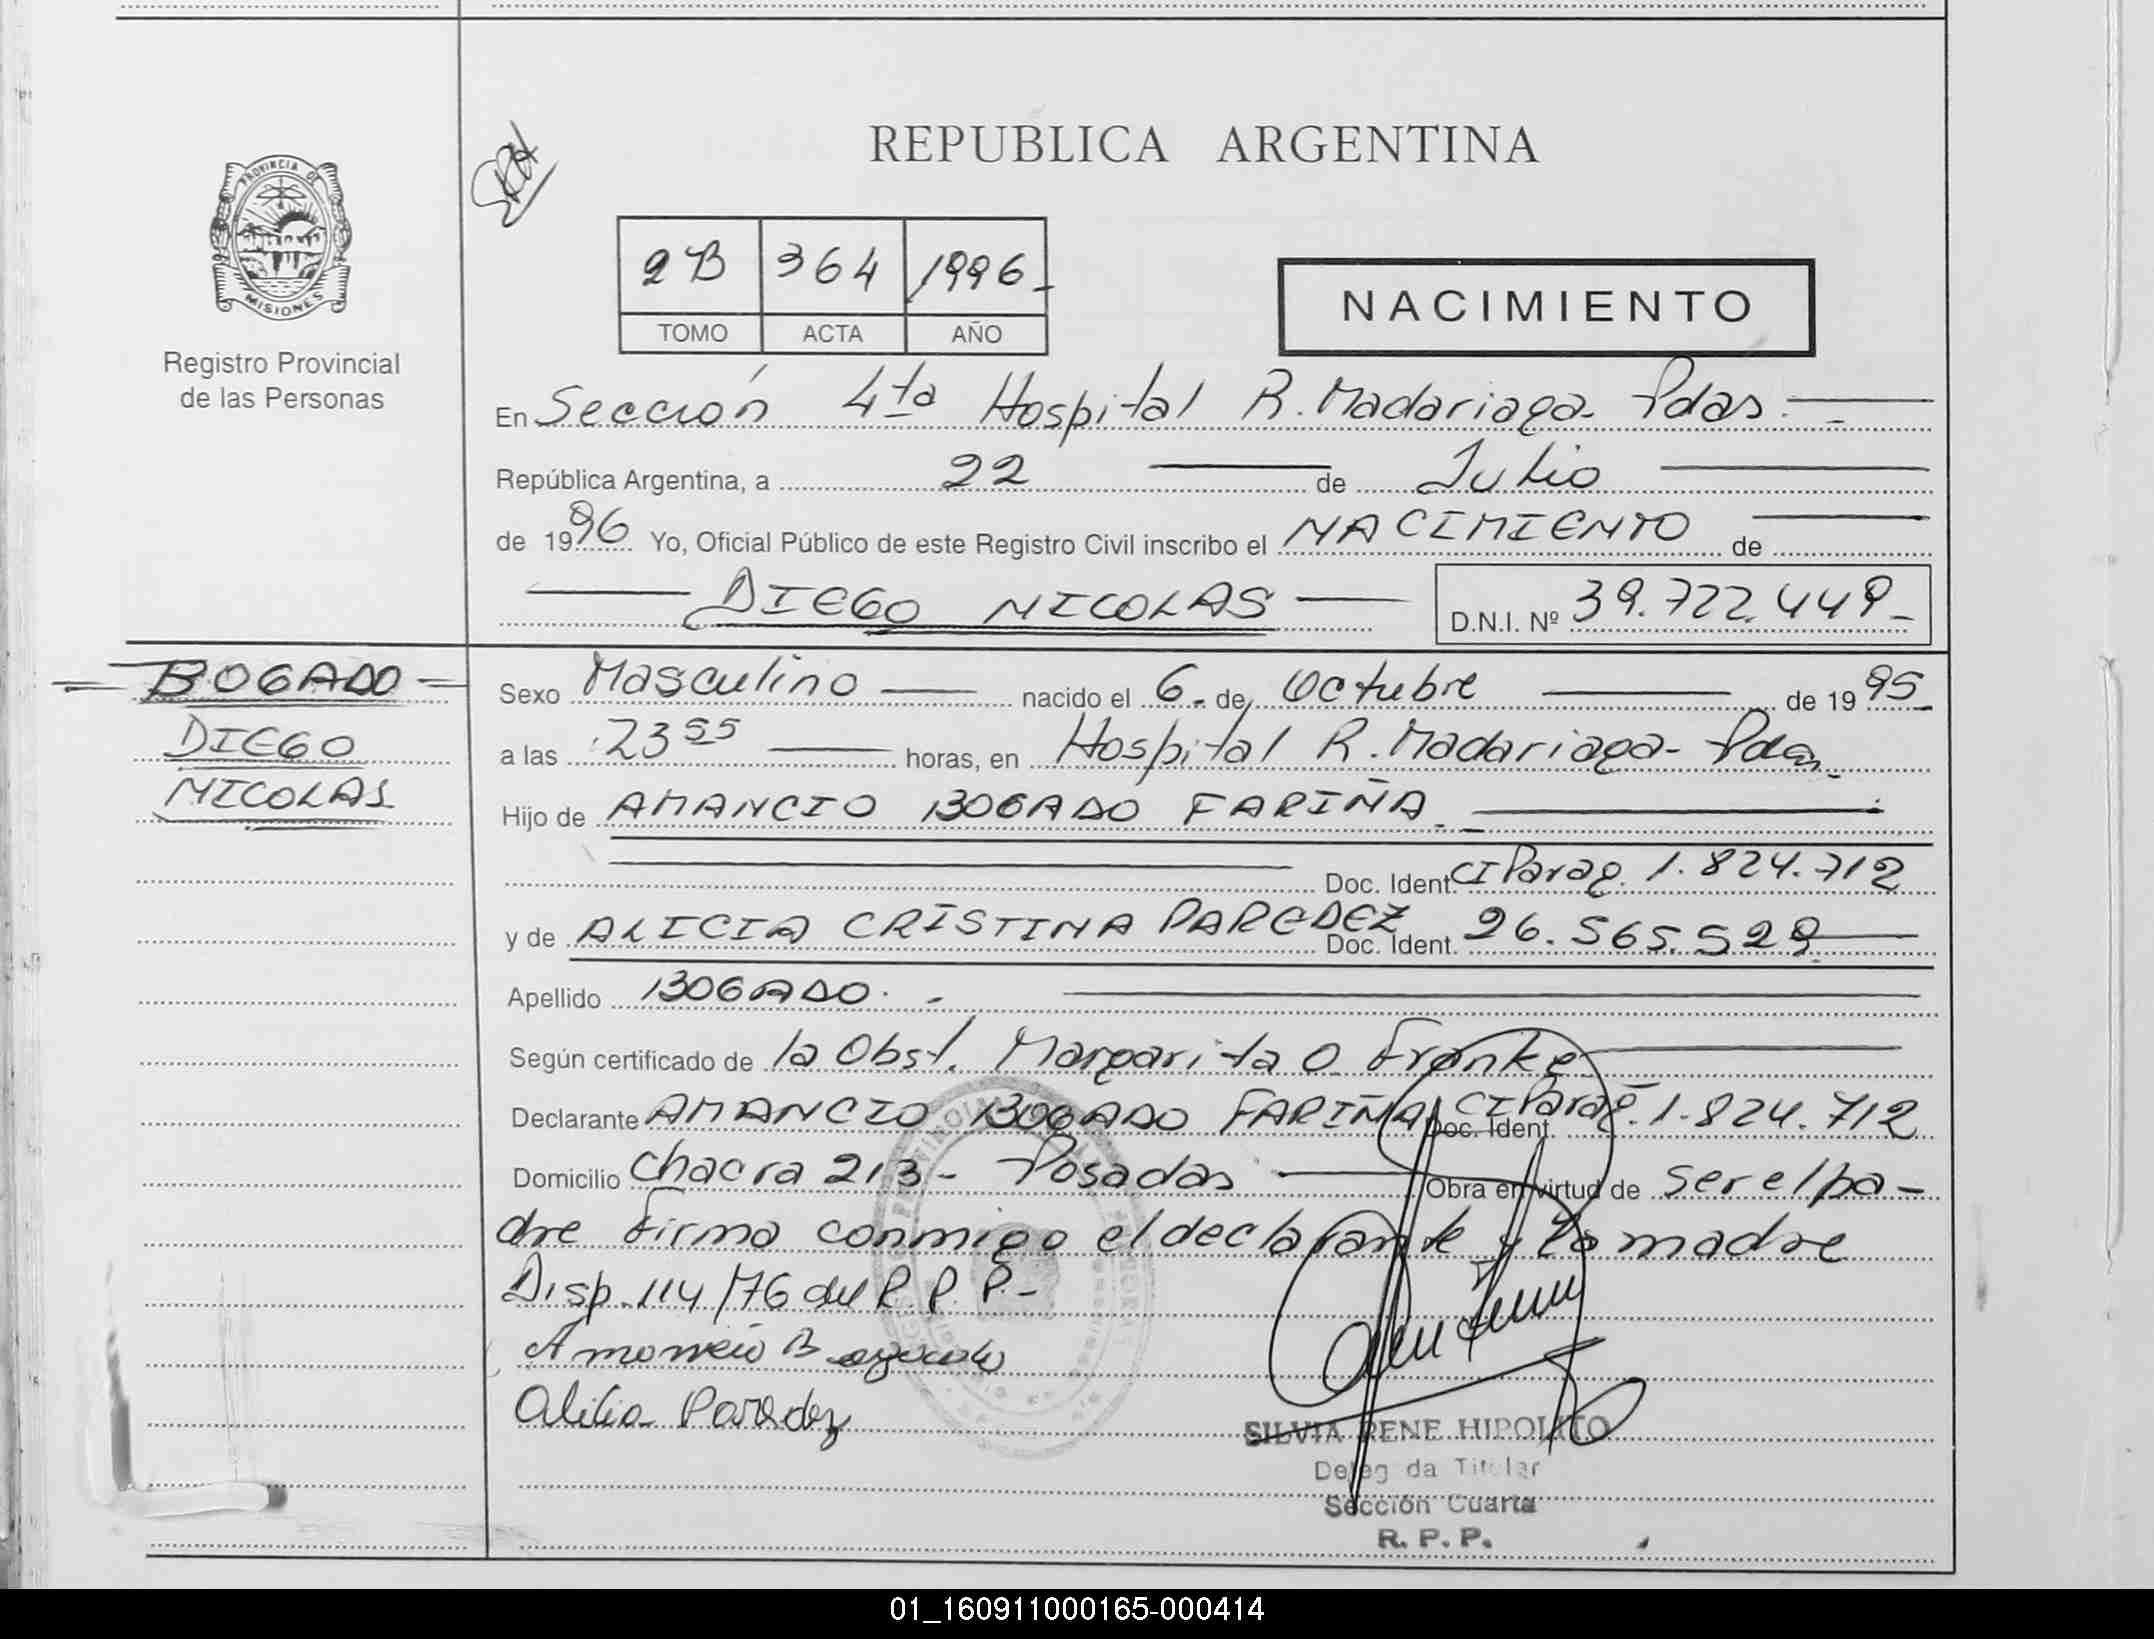 REPUBLICA ARGENTINA
PROVINCIA DE
MISIONES
Registro Provincial
de las Personas
2B 364 1996
TOMO ACTA AÑO
NACIMIENTO
En Sección 4ta Hospital R. Madariaga - Pdas.
República Argentina, a 22 de Julio
de 1996 Yo, Oficial Público de este Registro Civil inscribo el NACIMIENTO de
DIEGO NICOLAS D.N.I. Nº 39.722.449
BOGADO
DIEGO
NICOLAS
Sexo Masculino nacido el 6 de Octubre de 1995
a las 23 55 horas, en Hospital R. Madariaga - Pdas.
Hijo de AMANCIO BOGADO FARIÑA
Doc. Ident. CI Parag. 1.824.712
y de ALICIA CRISTINA PAREDEZ Doc. Ident. 26.565.529
Apellido BOGADO.
Según certificado de la Obst. Margarita O. Franke
Declarante AMANCIO BOGADO FARIÑA Doc. Ident. CI Parag. 1.824.712
Domicilio Chacra 213 - Posadas Obra en virtud de ser el pa-
dre firma conmigo el declarante y la madre
Disp. 114/76 del R. P. P.-
Alicia Paredez
SILVIA RENE HIPOLITO
Delegada Titular
Sección Cuarta
R. P. P.
01_160911000165-000414